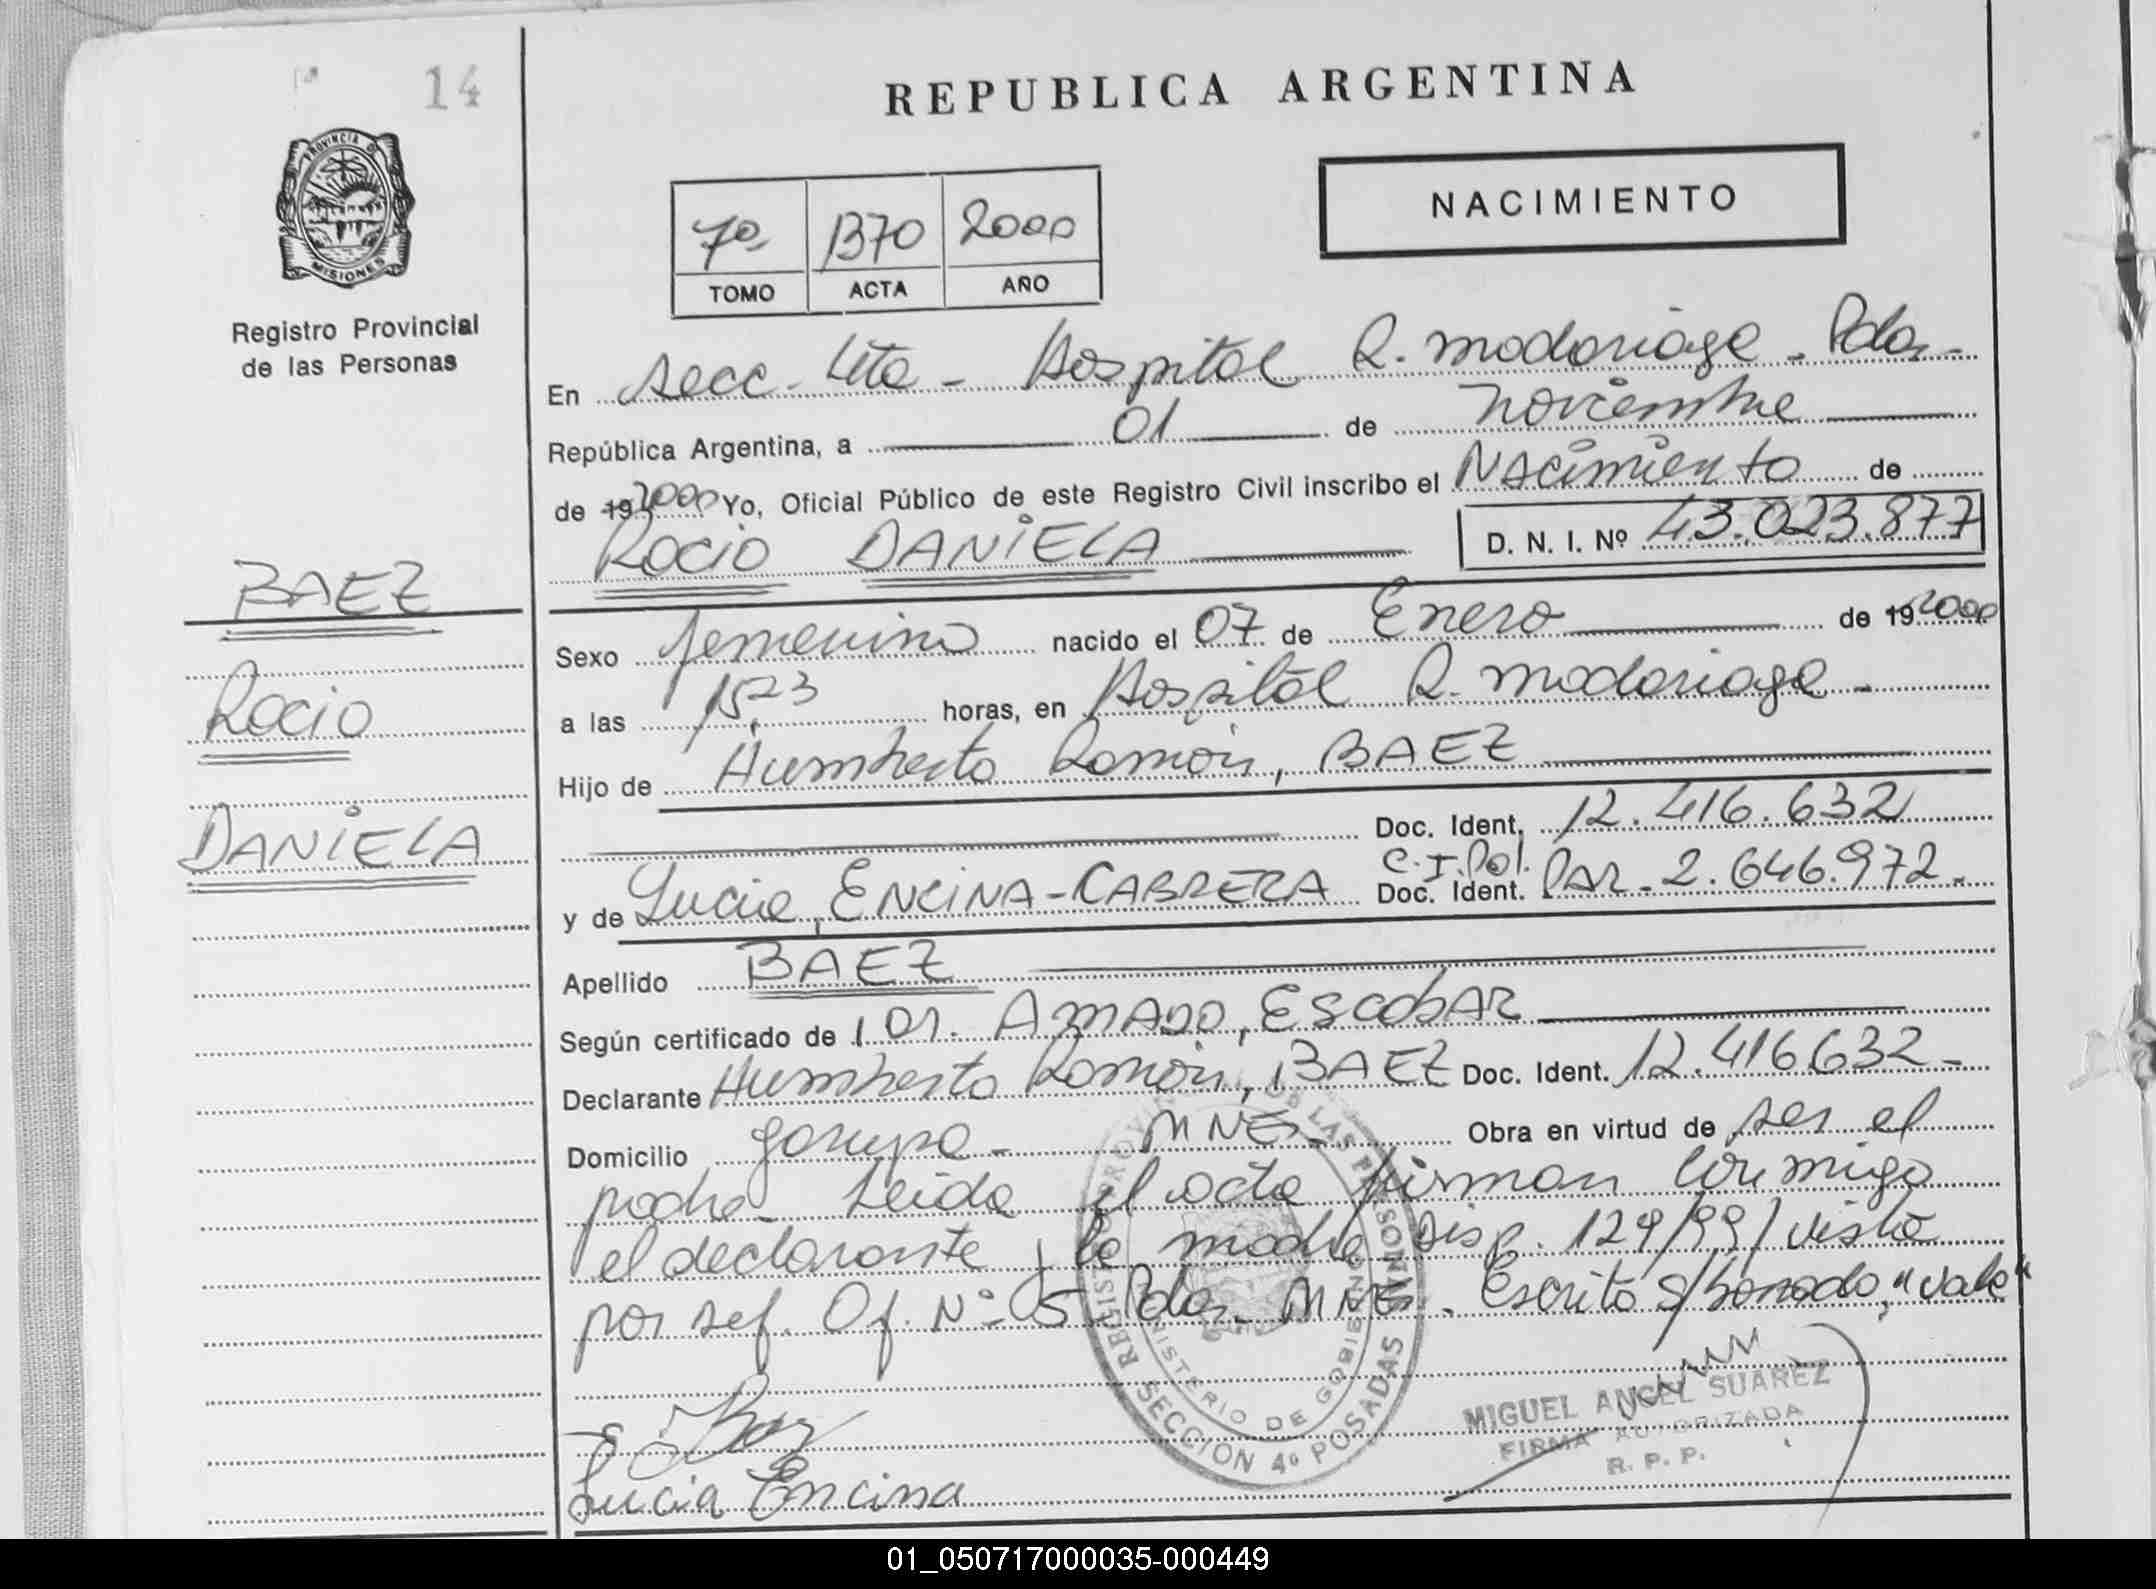 14
REPUBLICA ARGENTINA
PROVINCIA D
MISIONES
Registro Provincial
de las Personas
7º 1370 2000
TOMO ACTA AÑO
NACIMIENTO
En secc. 4ta - Hospital R. Madariaga - Pdas -
República Argentina, a 01 de Noviembre
de 19 2000 Yo, Oficial Público de este Registro Civil inscribo el Nacimiento de
ROCIO DANIELA D. N. I. Nº 43.023.877
BAEZ
Rocio
DANIELA
Sexo femenino nacido el 07 de Enero de 19 2000
a las 15,23 horas, en Hospital R. Madariaga -
Hijo de Humberto Ramón, BAEZ
Doc. Ident. 12.416.632
C.I.Pol.
y de Lucia, ENCINA-CABRERA Doc. Ident. PAR. 2.646.972.
Apellido BAEZ
Según certificado de Dr. AMADO, ESCOBAR
Declarante Humberto Ramón, BAEZ Doc. Ident. 12.416632 -
Domicilio Garupa - MNES. Obra en virtud de ser el
padre - Leida el acta firman conmigo
el declarante y la madre Disp. 129/99/ vista
por Jef. Of. Nº 5 Pdas. MNES. Escrito s/borrado, "vale"
REGISTRO PROVINCIAL DE LAS PERSONAS
MINISTERIO DE GOBIERNO
SECCION 4º POSADAS
MIGUEL ANGEL SUAREZ
FIRMA AUTORIZADA
R. P. P.
Lucia Encina
01_050717000035-000449